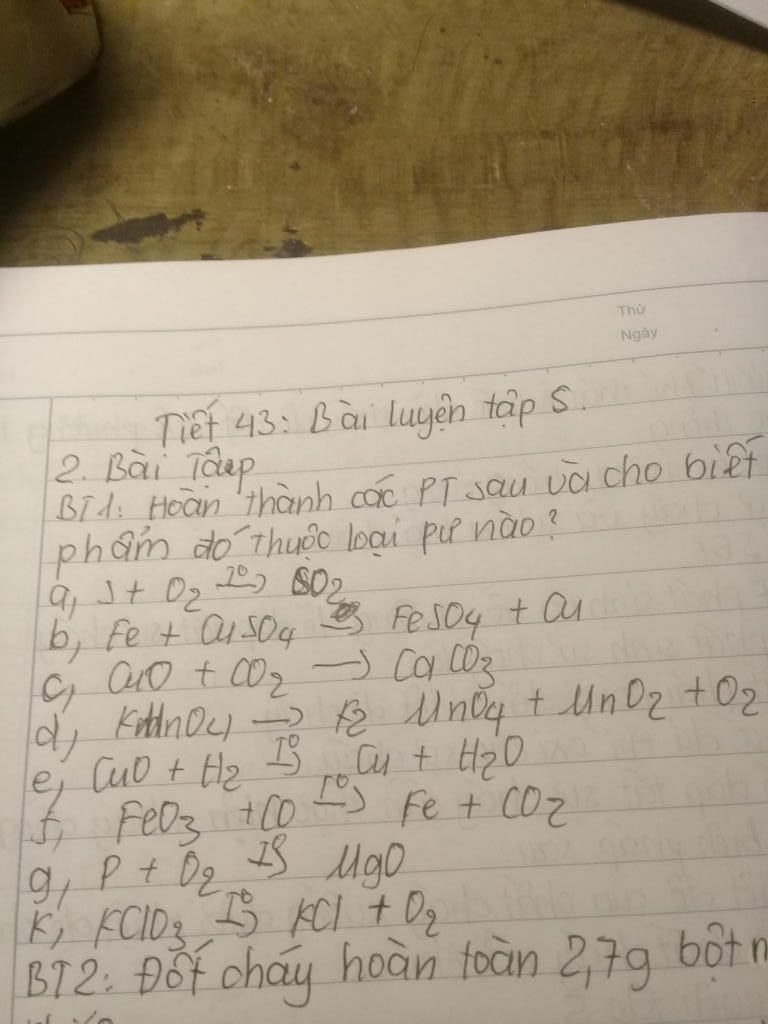 Thứ
Ngày
Tiết 43: Bài luyện tập 5.
2. Bài Tâập
BT1: Hoàn thành các PT sau và cho biết
phẩm đó thuộc loại pư nào?
a, S + O2 →t° SO2
b, Fe + CuSO4 → FeSO4 + Cu
c, CuO + CO2 → CaCO3
d, KMnO4 → K2 MnO4 + MnO2 + O2
e, CuO + H2 →t° Cu + H2O
f, FeO3 + CO →t° Fe + CO2
g, P + O2 →t° MgO
K, KClO3 →t° KCl + O2
BT2: Đốt cháy hoàn toàn 2,7g bột